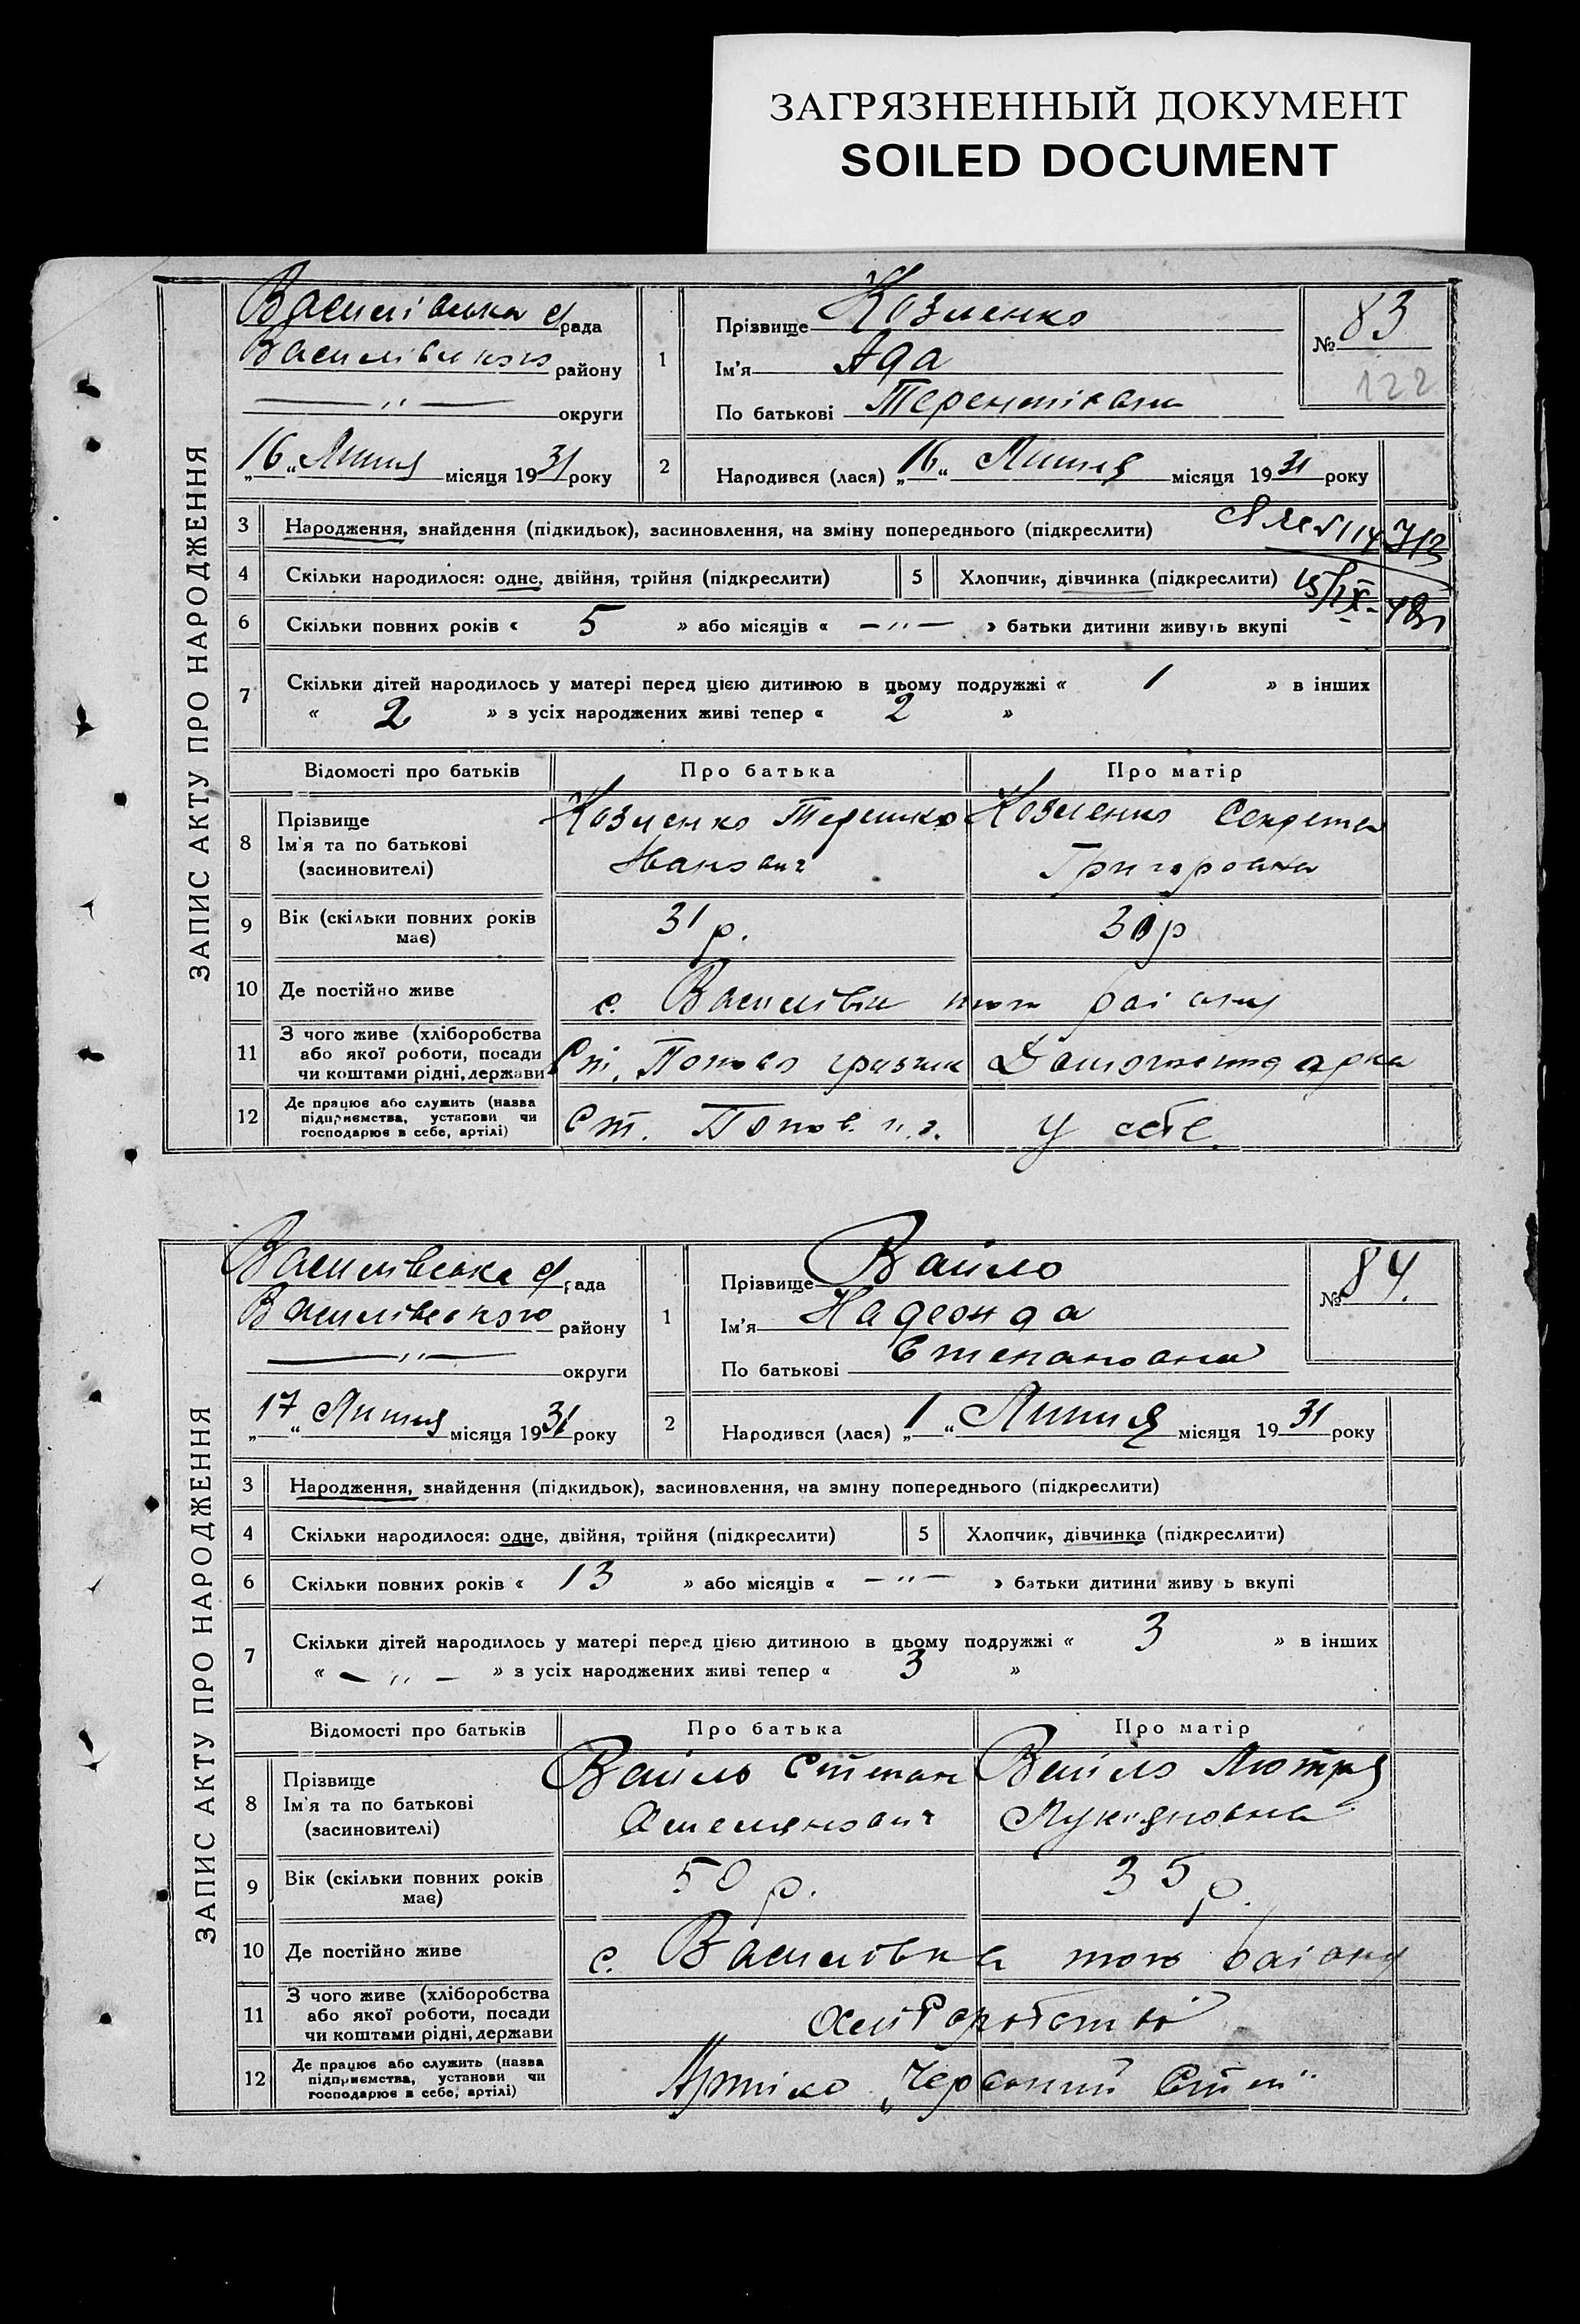 ЗАГРЯЗНЕННЫЙ ДОКУМЕНТ
SOILED DOCUMENT
ЗАПИС АКТУ ПРО НАРОДЖЕННЯ
Василівська с/рада
Василівського району
—„— округи
„16“ Липня місяця 1931 року
1 Прізвище Козленко
Ім'я Ада
По батькові
№ 83
122
2 Народився (лася) „16“ Липня місяця 1931 року
3 Народження, знайдення (підкидьок), засиновлення, на зміну попереднього (підкреслити)
4 Скільки народилося: одне, двійня, трійня (підкреслити) 5 Хлопчик, дівчинка (підкреслити)
6 Скільки повних років « 5 » або місяців « —„— » батьки дитини живуть вкупі
7 Скільки дітей народилось у матері перед цією дитиною в цьому подружжі « 1 » в інших
« 2 » з усіх народжених живі тепер « 2 »
Відомості про батьків Про батька Про матір
8 Прізвище
Ім'я та по батькові
(засиновителі)
Козленко Терешко
Іванович
Козленко
Григоровна
9 Вік (скільки повних років має) 31 р. 30 р
10 Де постійно живе с. Василівка того району
11 З чого живе (хліборобства
або якої роботи, посади
чи коштами рідні, держави
Ст. Попово
12 Де працює або служить (назва
підприємства, установи чи
господарює в себе, артілі)
Ст. Попов. У себе
ЗАПИС АКТУ ПРО НАРОДЖЕННЯ
Василівська с/рада
Василівського району
—„— округи
„17“ Липня місяця 1931 року
1 Прізвище Вайло
Ім'я Надежда
По батькові Степановна
№ 84.
2 Народився (лася) „1“ Липня місяця 1931 року
3 Народження, знайдення (підкидьок), засиновлення, на зміну попереднього (підкреслити)
4 Скільки народилося: одне, двійня, трійня (підкреслити) 5 Хлопчик, дівчинка (підкреслити)
6 Скільки повних років « 13 » або місяців « —„— » батьки дитини живуть вкупі
7 Скільки дітей народилось у матері перед цією дитиною в цьому подружжі « 3 » в інших
« —„— » з усіх народжених живі тепер « 3 »
Відомості про батьків Про батька Про матір
8 Прізвище
Ім'я та по батькові
(засиновителі)
Вайло Степан
Вайло
Лукіяновна
9 Вік (скільки повних років має) 50 р. 35 р.
10 Де постійно живе с. Василівка того району
11 З чого живе (хліборобства
або якої роботи, посади
чи коштами рідні, держави
12 Де працює або служить (назва
підприємства, установи чи
господарює в себе, артілі)
„Червоний Степ“